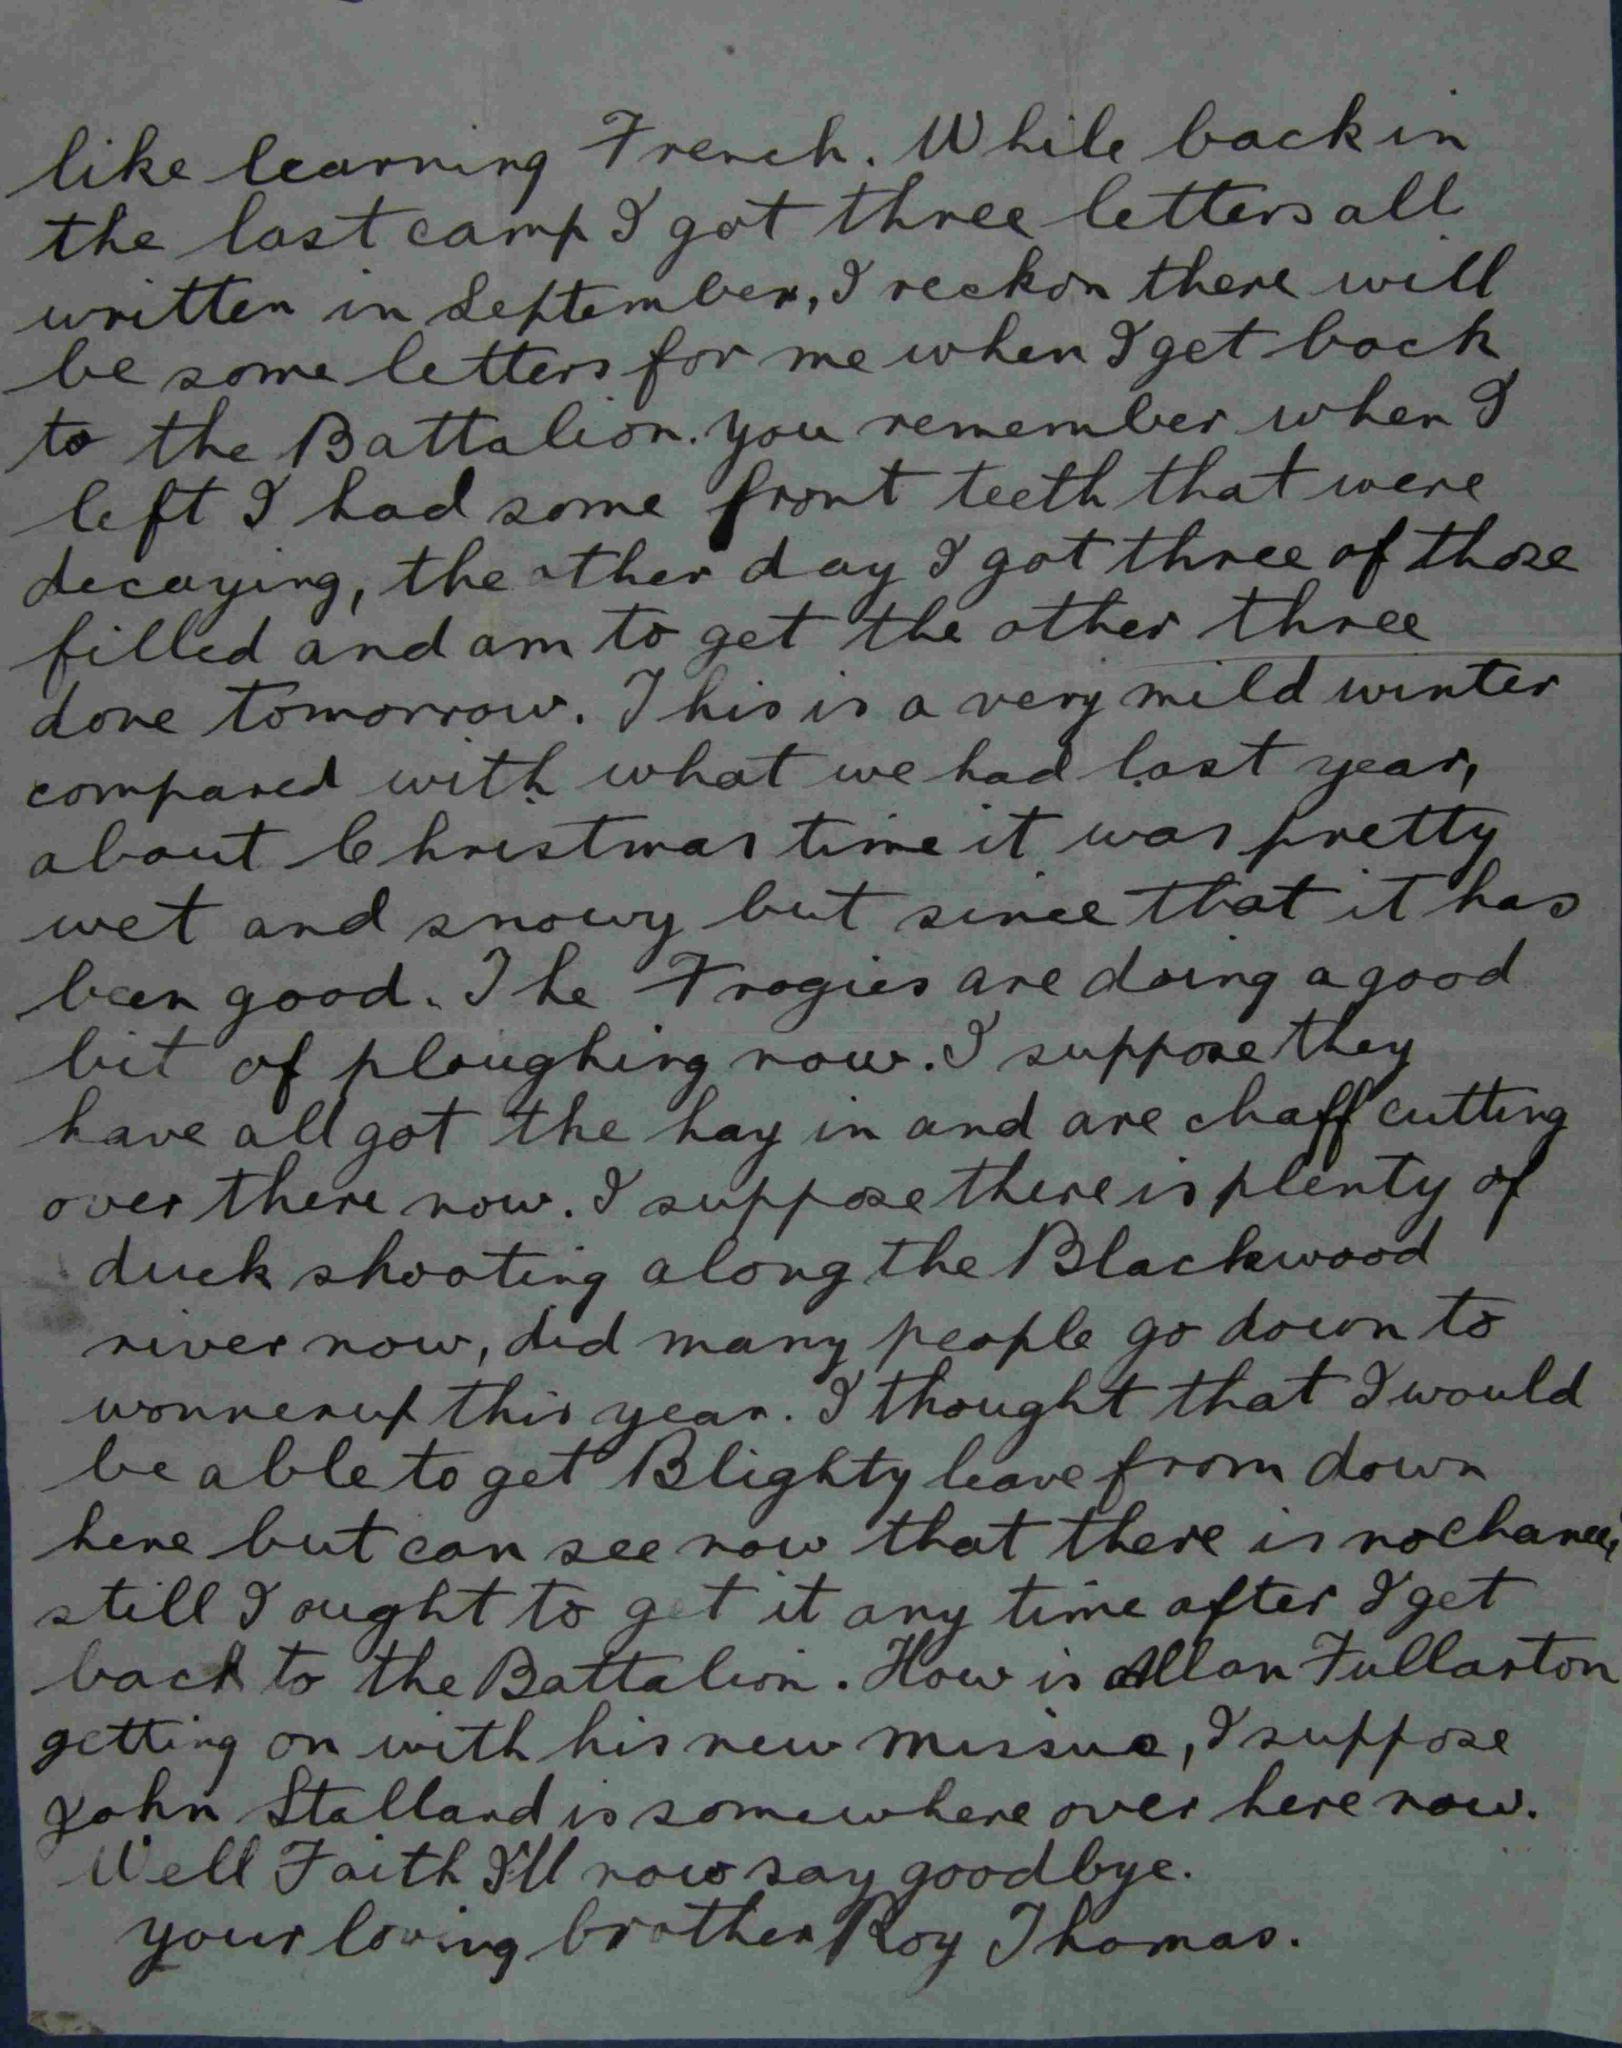 like learning French. While back in
the last camp I got three letters all
written in September, I reckon there will
be some letters for me when I get back
to the Battalion. you remember when I
left I had some front teeth that were
decaying, the other day I got three of those
filled and am to get the other three
done tomorrow. This is a very mild winter
compared with what we had last year,
about Christmas time it was pretty
wet and snowy but since that it has
been good. The Frogies are doing a good
bit of ploughing now. I suppose they
have all got the hay in and are chaff cutting
over there now. I suppose there is plenty of
duck shooting along the Blackwood
river now, did many people go down to
wonnerup this year. I thought that I would
be able to get Blighty leave from down
here but can see now that there is no chance,
still I ought to get it any time after I get
back to the Battalion. How is Allan Fullarton
getting on with his new missus, I suppose
John Stallard is somewhere over here now.
Well Faith I'll now say goodbye.
your loving brother Roy Thomas.